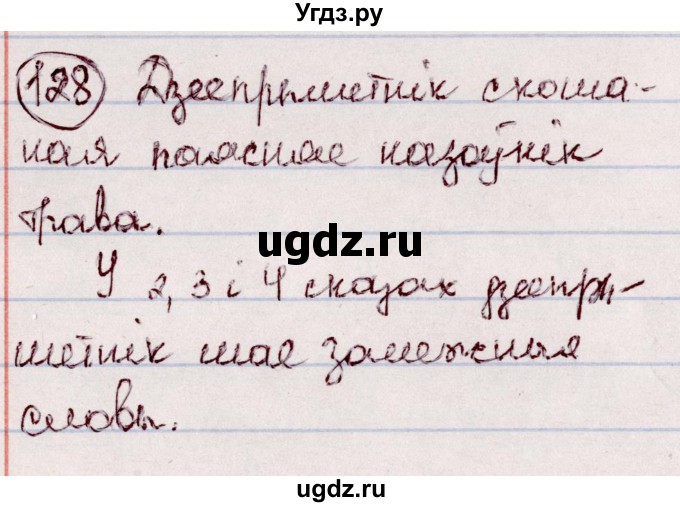 Угдз.ру
128 Дзеепрыметнік скоша-
ная паясняе назоўнік
трава.
ugdz.ru
У 2, 3 і 4 сказах дзеепры-
метнік мае залежныя
словы.
ugdz.ru